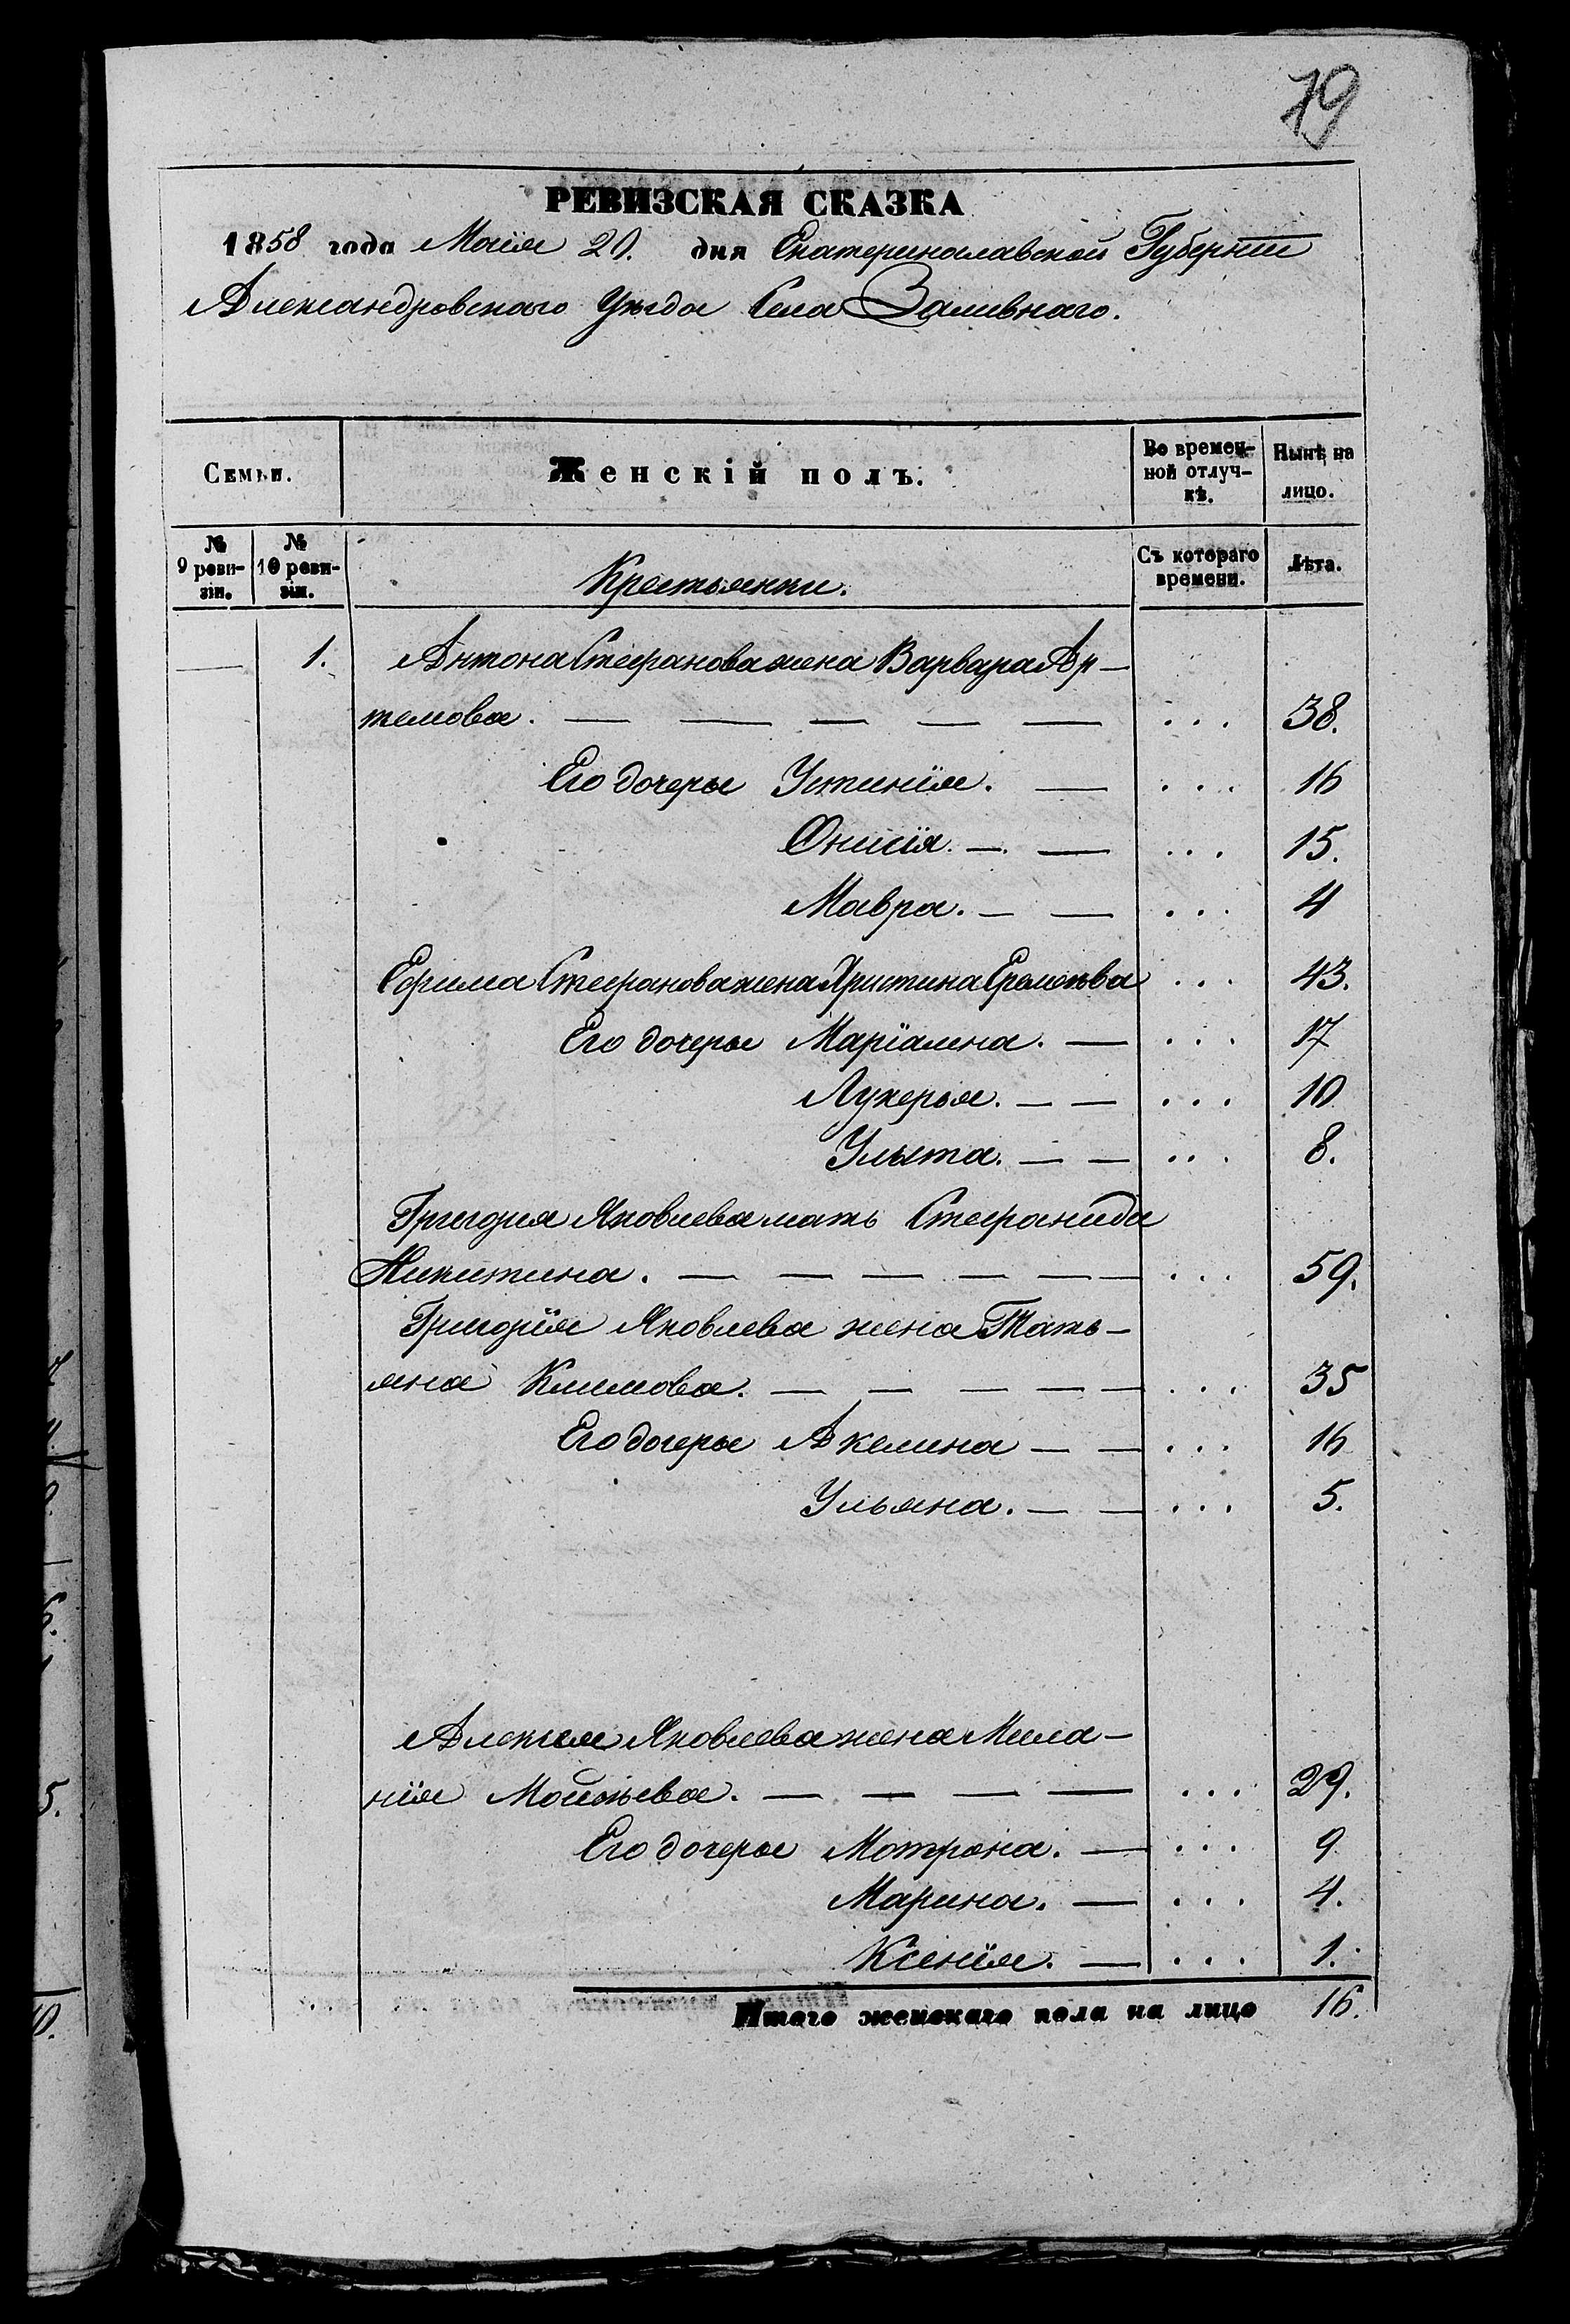 79
РЕВИЗСКАЯ СКАЗКА
1858 года Маія 20. дня Екатеринославской Губерніи
Александровскаго Уѣзда Села Заливнаго.
Семьи.
Женскій полъ.
Во времен-
ной отлуч-
кѣ.
Нынѣ на
лицо.
№
9 реви-
зіи.
№
10 реви-
зіи.
Крестьянки.
Съ котораго
времени.
Лѣта.
1. Антона Стефанова жена Варвара Ар-
темова. — — — — — ... 38.
Его дочерье Устинія. — ... 16
Онисія. — — ... 15.
Мавра. — — ... 4
Ефима Стефанова жена Христина Еремѣева ... 43.
Его дочерье Маріамна. — ... 17
Лукерья. — — ... 10
Улыта. — — ... 8.
Григорія Яковлева мать Стефанида
Никитина. — — — — — — ... 59.
Григорія Яковлева жена Тать-
яна Климова. — — — — — ... 35
Его дочерье Акелина — — ... 16
Ульяна. — — ... 5.
Алексея Яковлева жена Мела-
нія Моисѣева. — — — — ... 29.
Его дочерье Мотрона. — ... 9
Марина. — ... 4.
Ксенія. — ... 1.
Итого женскаго пола на лицо 16.
5.